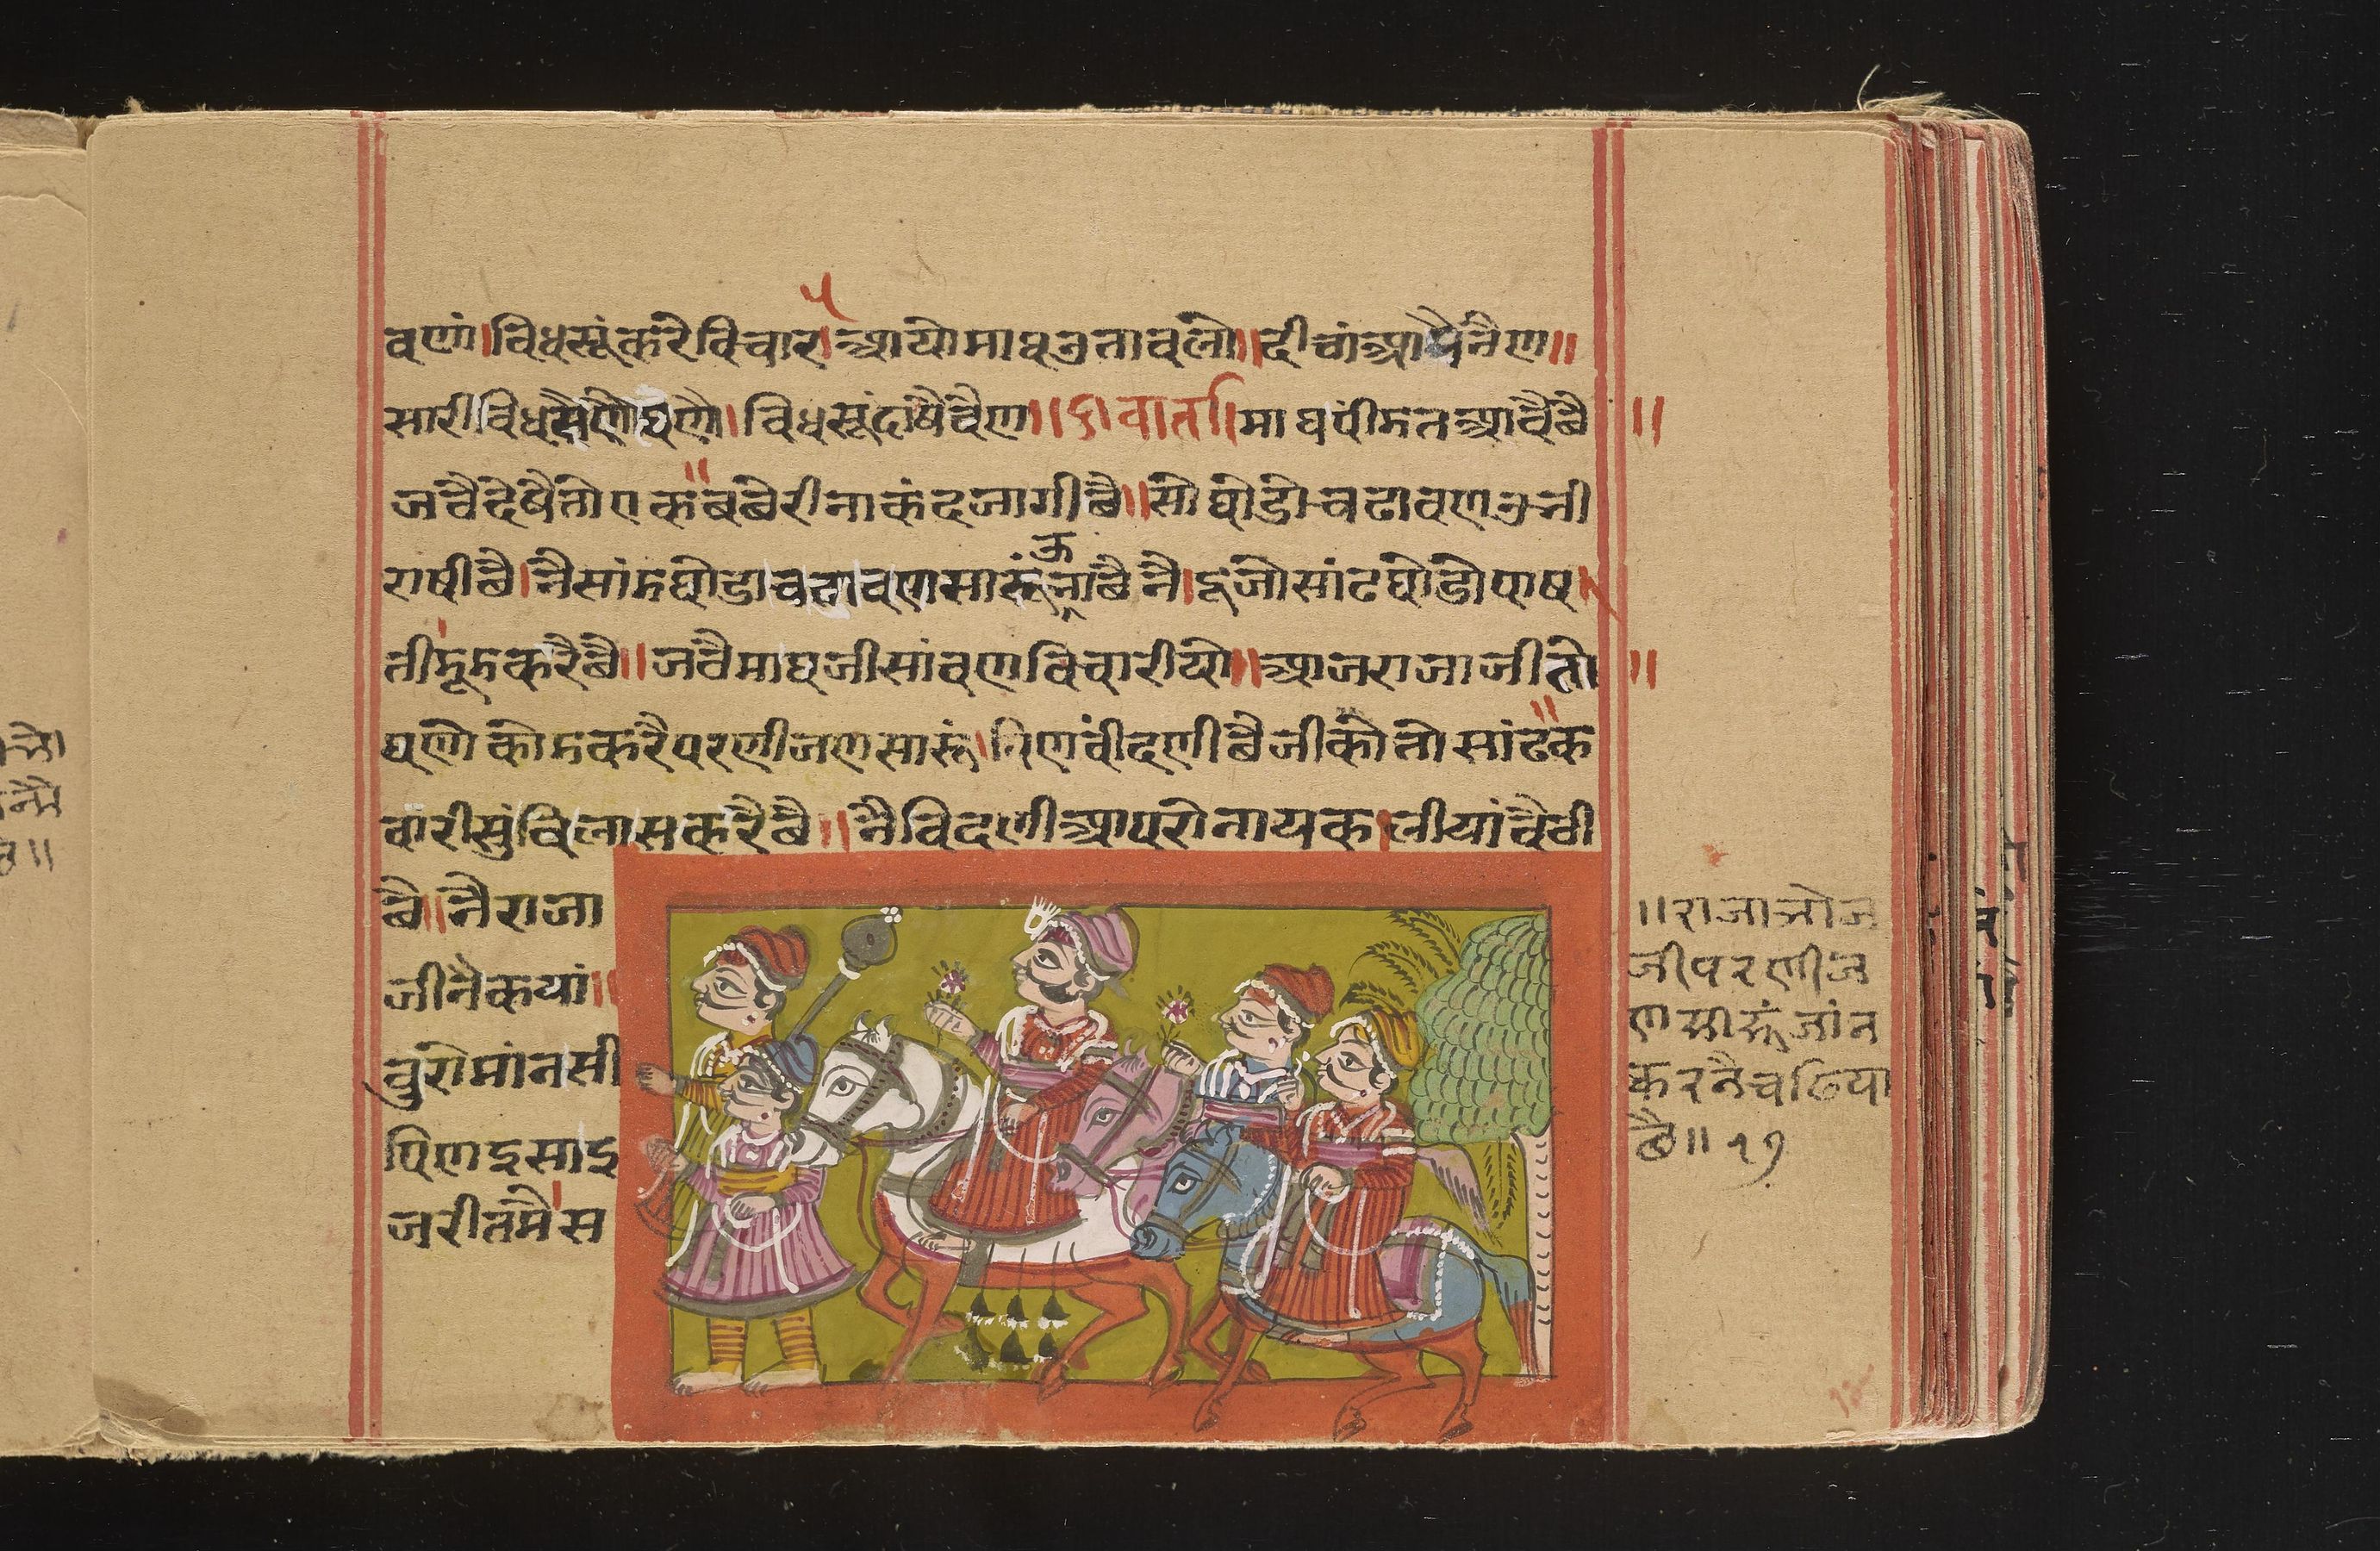 वणां।विधसूंकरेविचार।आयोमाघउतावलो॥दीचांआपैनैण॥
सारीविधसैणैघणै।विधसूंदाषैवैण॥६।वार्ता।माघपींडतआवैछै
जवैदेषैतोएकछछेरीनाकंदजागीछै॥सोघोडोचढावणउनी
राषीछै।नैसांडघोडाचढावणसारूंनाछैनै।दूजोसांढघोडोपाष
ऊ
तीडूडकरैछै॥जवैमाघजीसांवणविचारीयो॥आजराजाजीतो
घणोकोडकरैपरणीजणसारूं।तिणवींदणीछैजीकोतोसांढक
वारीसुंविलासकरैछै॥नैविदणीआपरोनायक।लीयांवैठी
छै॥नैराजा
जीनैकयां॥
वुरोमांनसी
पिणइसाइ
जरीतमैस
॥राजाभोज
जीपरणीज
णसारूंजांन
करनैचढिया
छै॥१७